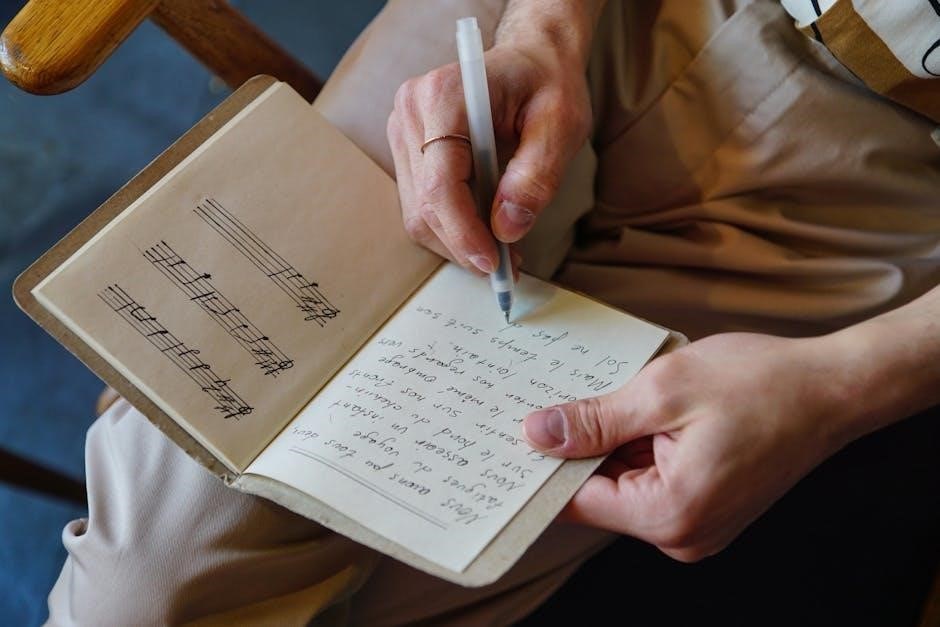 Nous avons pu tous deux,
fatigués du voyage
Nous asseoir un instant
sur le bord du chemin-
sentir sur nos fronts
le même ombrage
nos regards vers
horizon lointain.
Mais le temps suit son
Sol ne pas